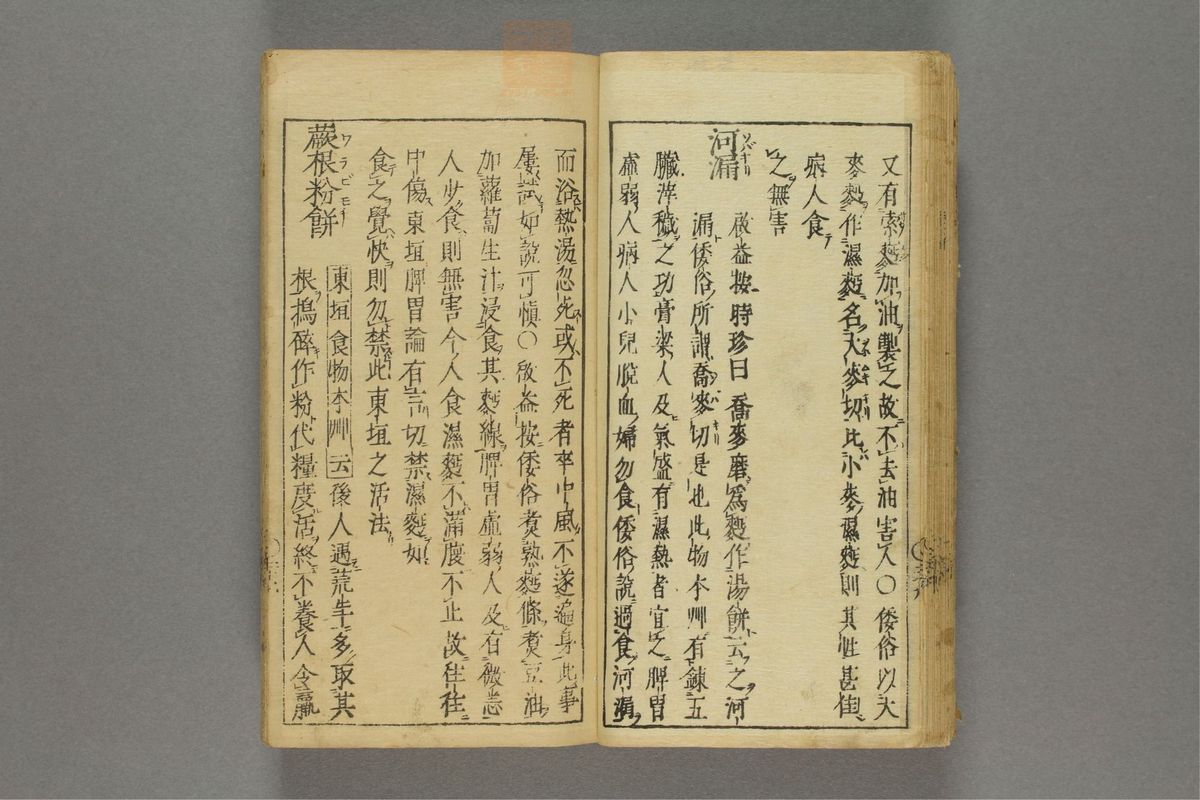 又有索麪加油製之故不去油害人〇倭俗以大
麥麪作濕麪名大麥切比小麥濕麪則其性甚佳
病人食
之無害
河漏
啟益按時珍曰喬麥磨為麪作湯餅云之河
漏倭俗所謂喬麥切是也此物本艸有錬五
臟滓穢之功膏粱人及氣盛有濕熱者宜之脾胃
虛弱人病人小兒脫血婦勿食倭俗說過食河漏
而浴熱湯忽死或不死者卒中風不遂遍身此事
屢試如說可慎〇啟益按倭俗煑熟麪條煑豆油
加蘿蔔生汁浸食其麪線脾胃虛弱人及有微恙
人少食則無害今人食濕麪不滿腹不止故往往
中傷東垣脾胃論有言切禁濕麪如
食之覺快則勿禁此東垣之活法
蕨根粉餅
ワラビモチ
東垣食物本艸云後人遇荒年多取其
根搗碎作粉代糧度活終不養人令羸